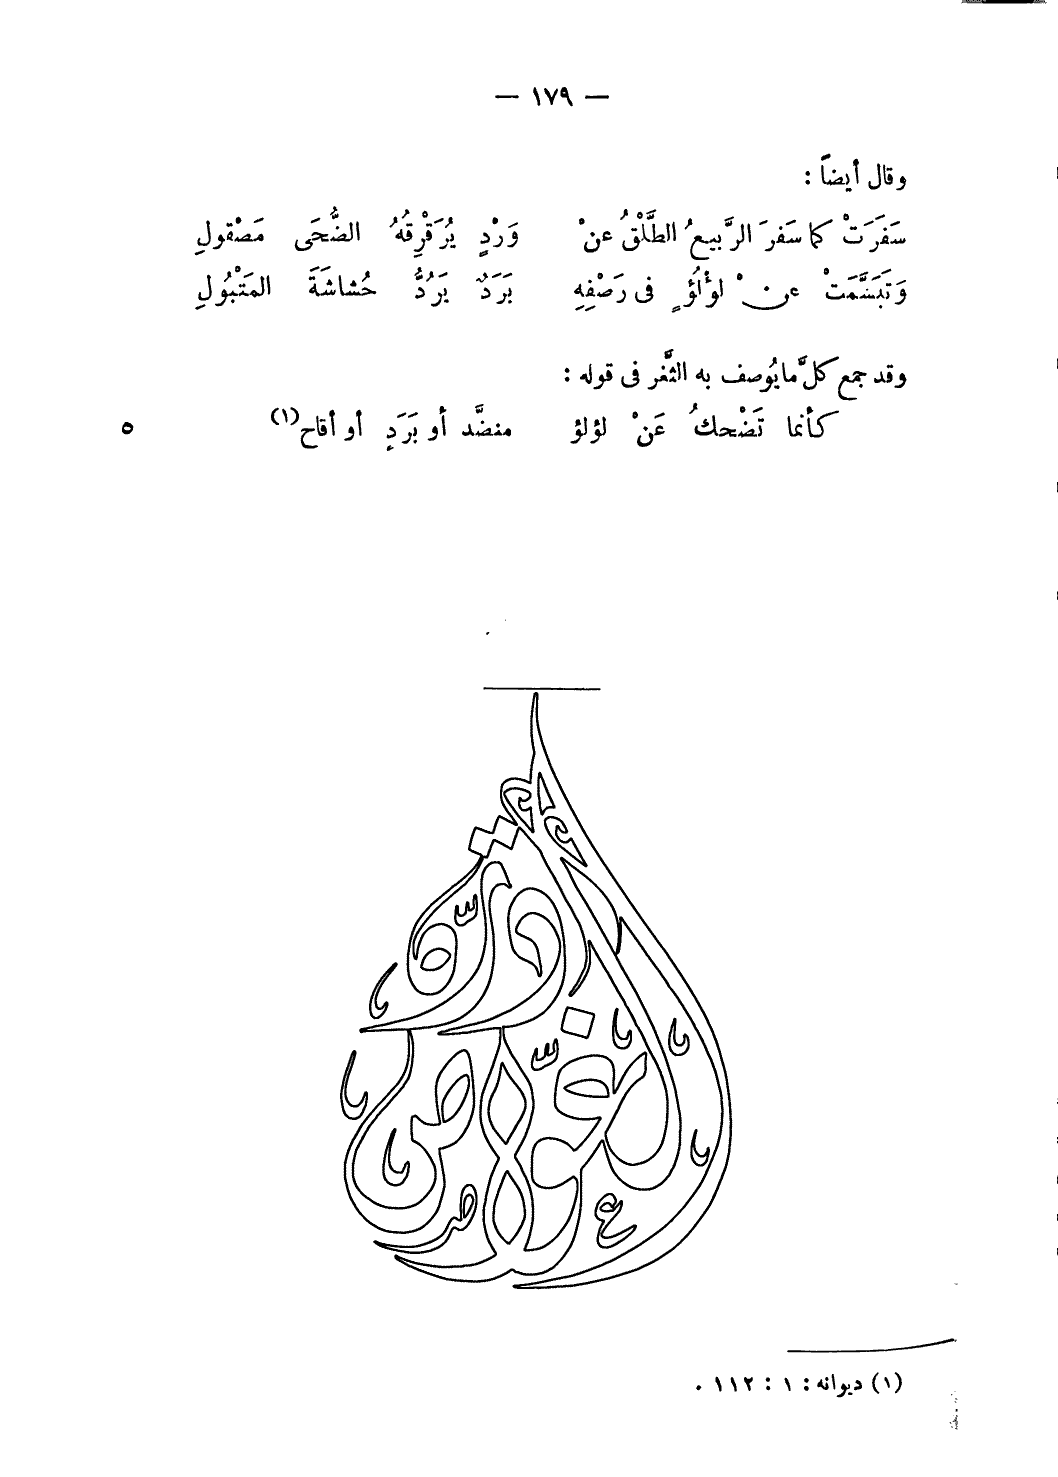 — ١٧٩ —
وقال أيضاً :
سَفَرَتْ كما سَفرَ الرَّبيعُ الطَّلْقُ عنْ وَرْدٍ يُرَقْرِقُهُ الضُّحَى مَصْقولِ
وَتَبَسَّمَتْ عنْ لؤْلُؤٍ فى رَصْفِهِ بَرَدٌ يَرُدُّ حُشاشَةَ المَتْبُولِ
وقد جمع كلَّ ما يُوصف به الثَّغر فى قوله :
كأنما تَضْحكُ عَنْ لؤلؤ منضَّد أو بَرَدٍ أو أقاح(١)
٥
درة الغوّاص
(١) ديوانه : ١ : ١١٢ .